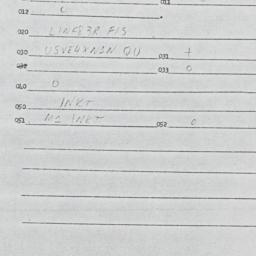 011
012 C
020 LINF83R FIS
030 USVE4XN1N QU 031 +
032 033 0
040 0
050 INKT
051 M1 INKT 052 0